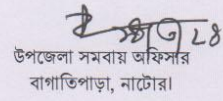 উপজেলা সমবায় অফিসার
বাগাতিপাড়া, নাটোর।